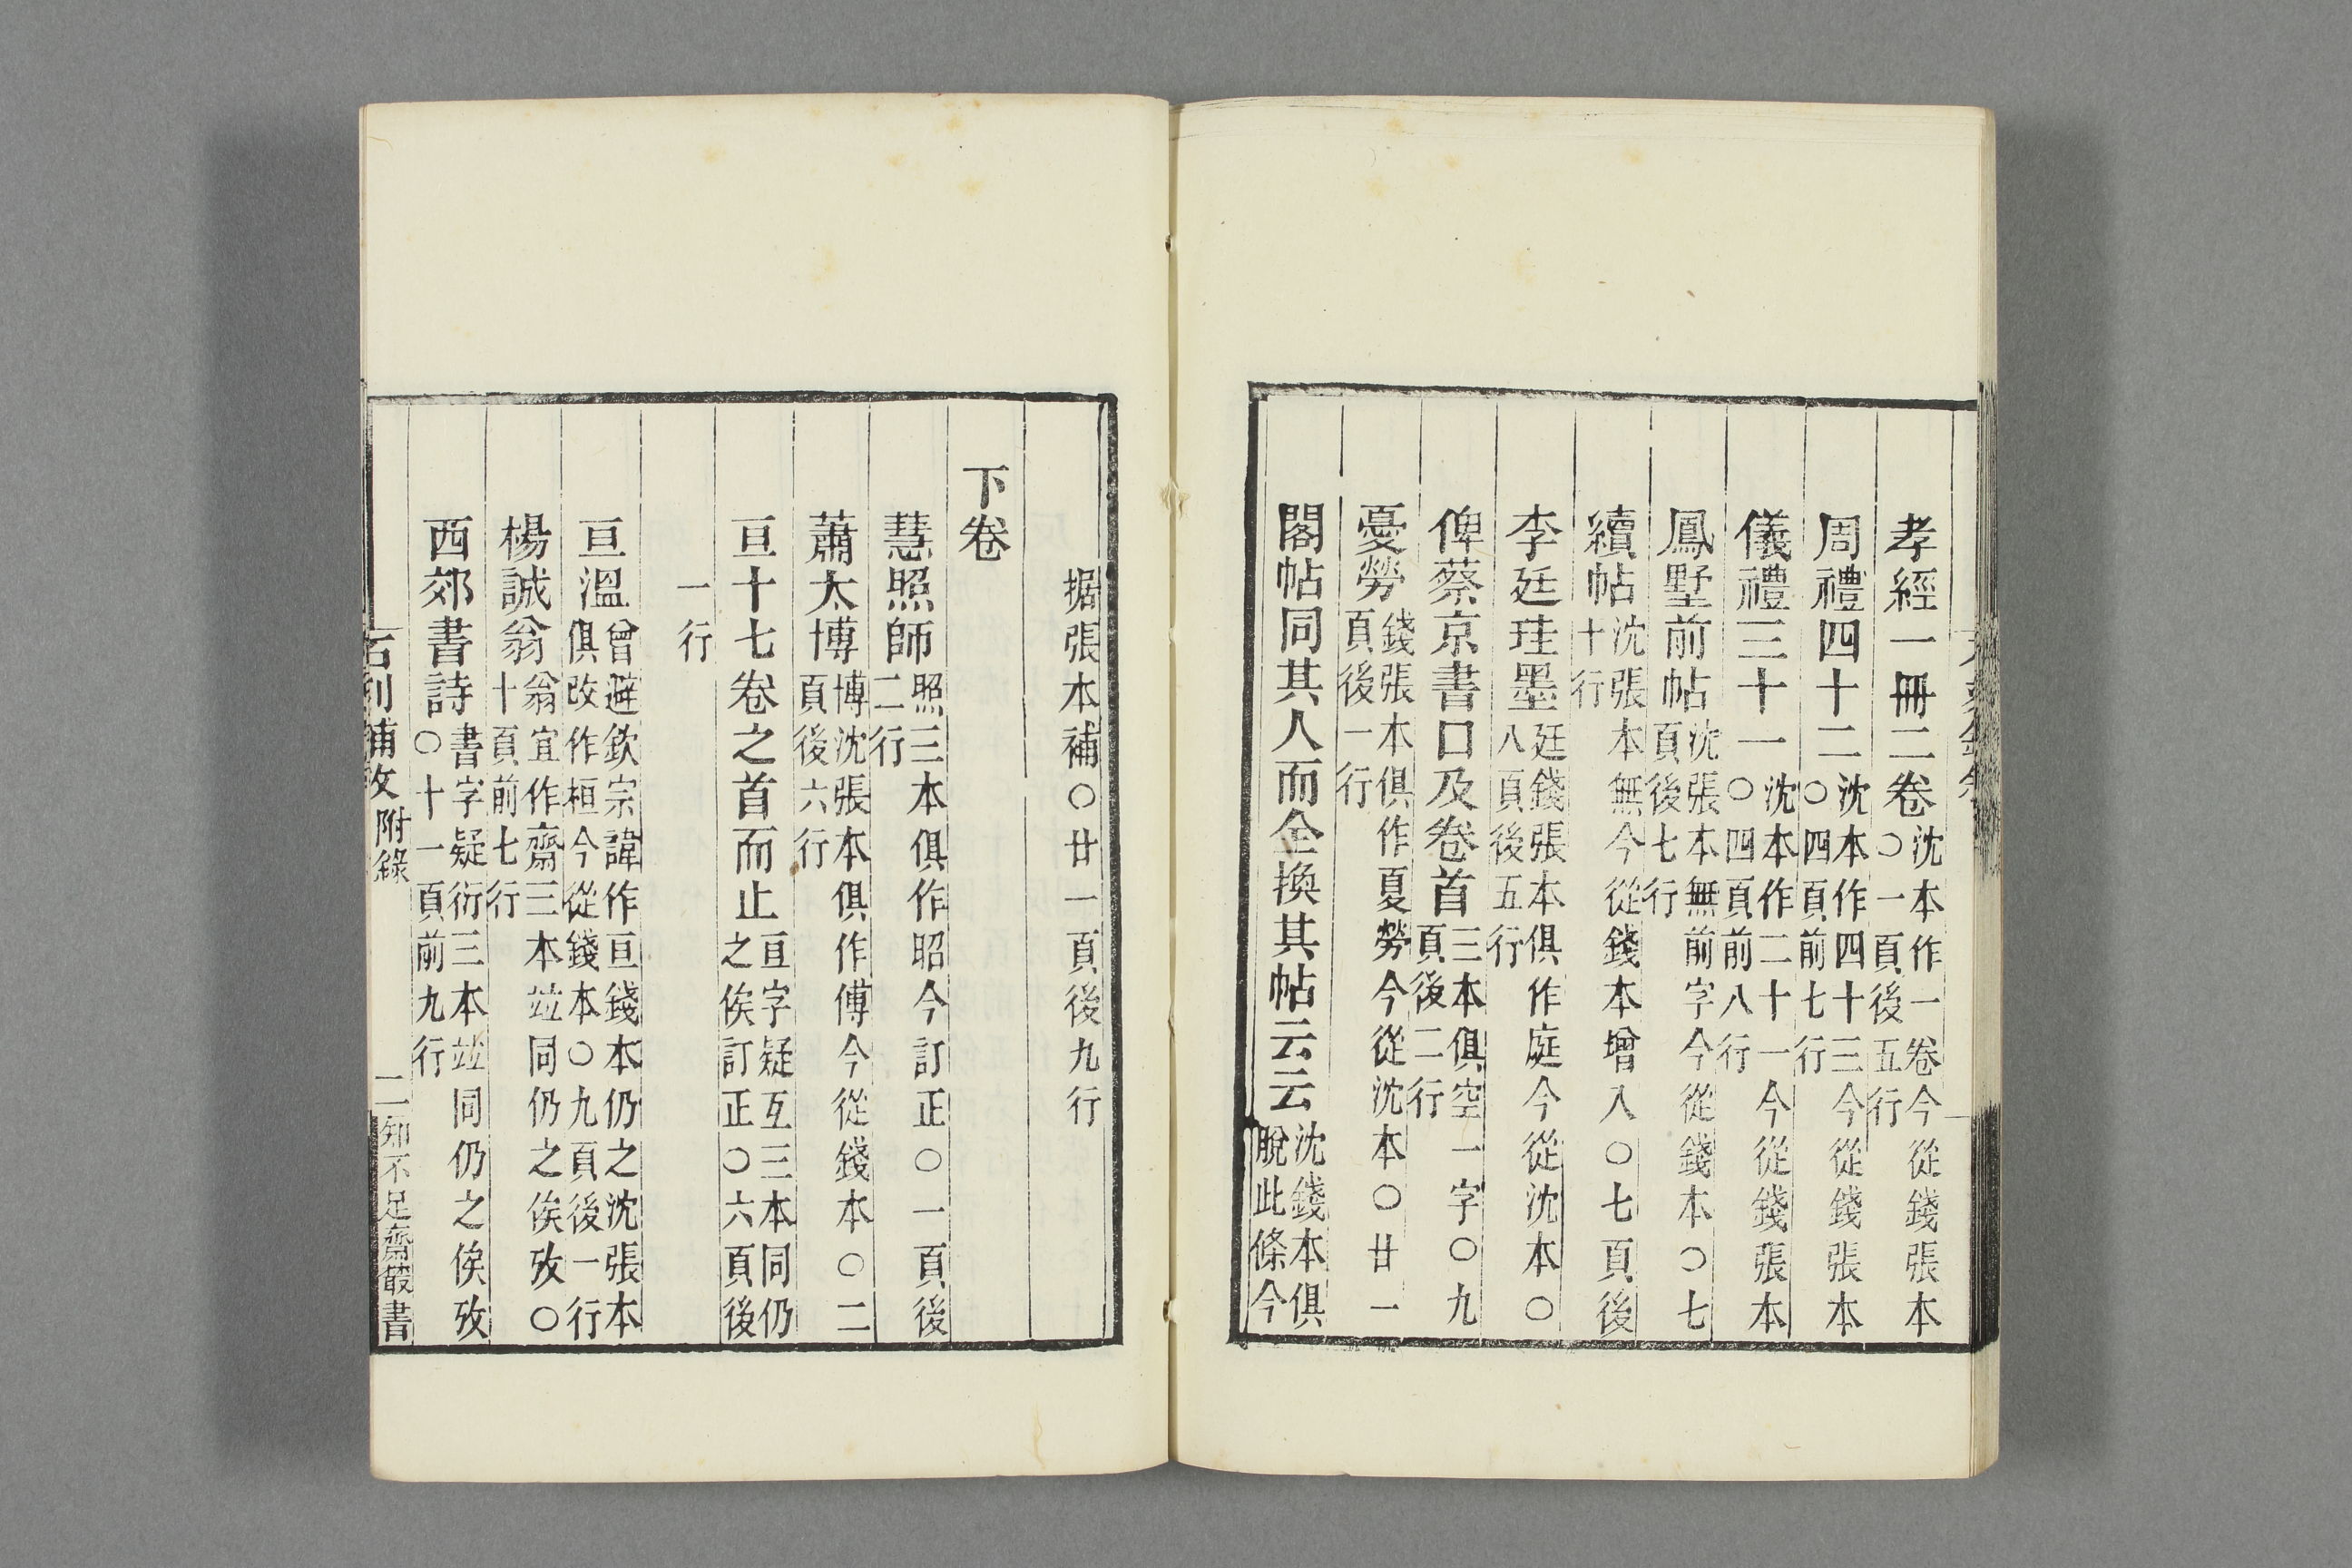 孝經一冊二卷沈本作一卷今從錢張本○一頁後五行
周禮四十二沈本作四十三今從錢張本○四頁前七行
儀禮三十一沈本作二十一今從錢張本○四頁前八行
鳳墅前帖沈張本無前字今從錢本○七頁後七行
續帖沈張本無今從錢本增入○七頁後十行
李廷珪墨廷錢張本俱作庭今從沈本○八頁後五行
俾蔡京書口及卷首三本俱空一字○九頁後二行
憂勞錢張本俱作夏勞今從沈本○廿一頁後一行
閣帖同其人而全換其帖云云沈錢本俱脫此條今
据張本補○廿一頁後九行
下卷
慧照師照三本俱作昭今訂正○一頁後二行
蕭太博博沈張本俱作傅今從錢本○二頁後六行
亘十七卷之首而止亘字疑互三本同仍之俟訂正○六頁後
一行
亘溫曾避欽宗諱作亘錢本仍之沈張本俱改作桓今從錢本○九頁後一行
楊誠翁翁宜作齋三本竝同仍之俟攷○十頁前七行
西郊書詩書字疑衍三本竝同仍之俟攷○十一頁前九行
石刻鋪敘附錄 二 知不足齋叢書